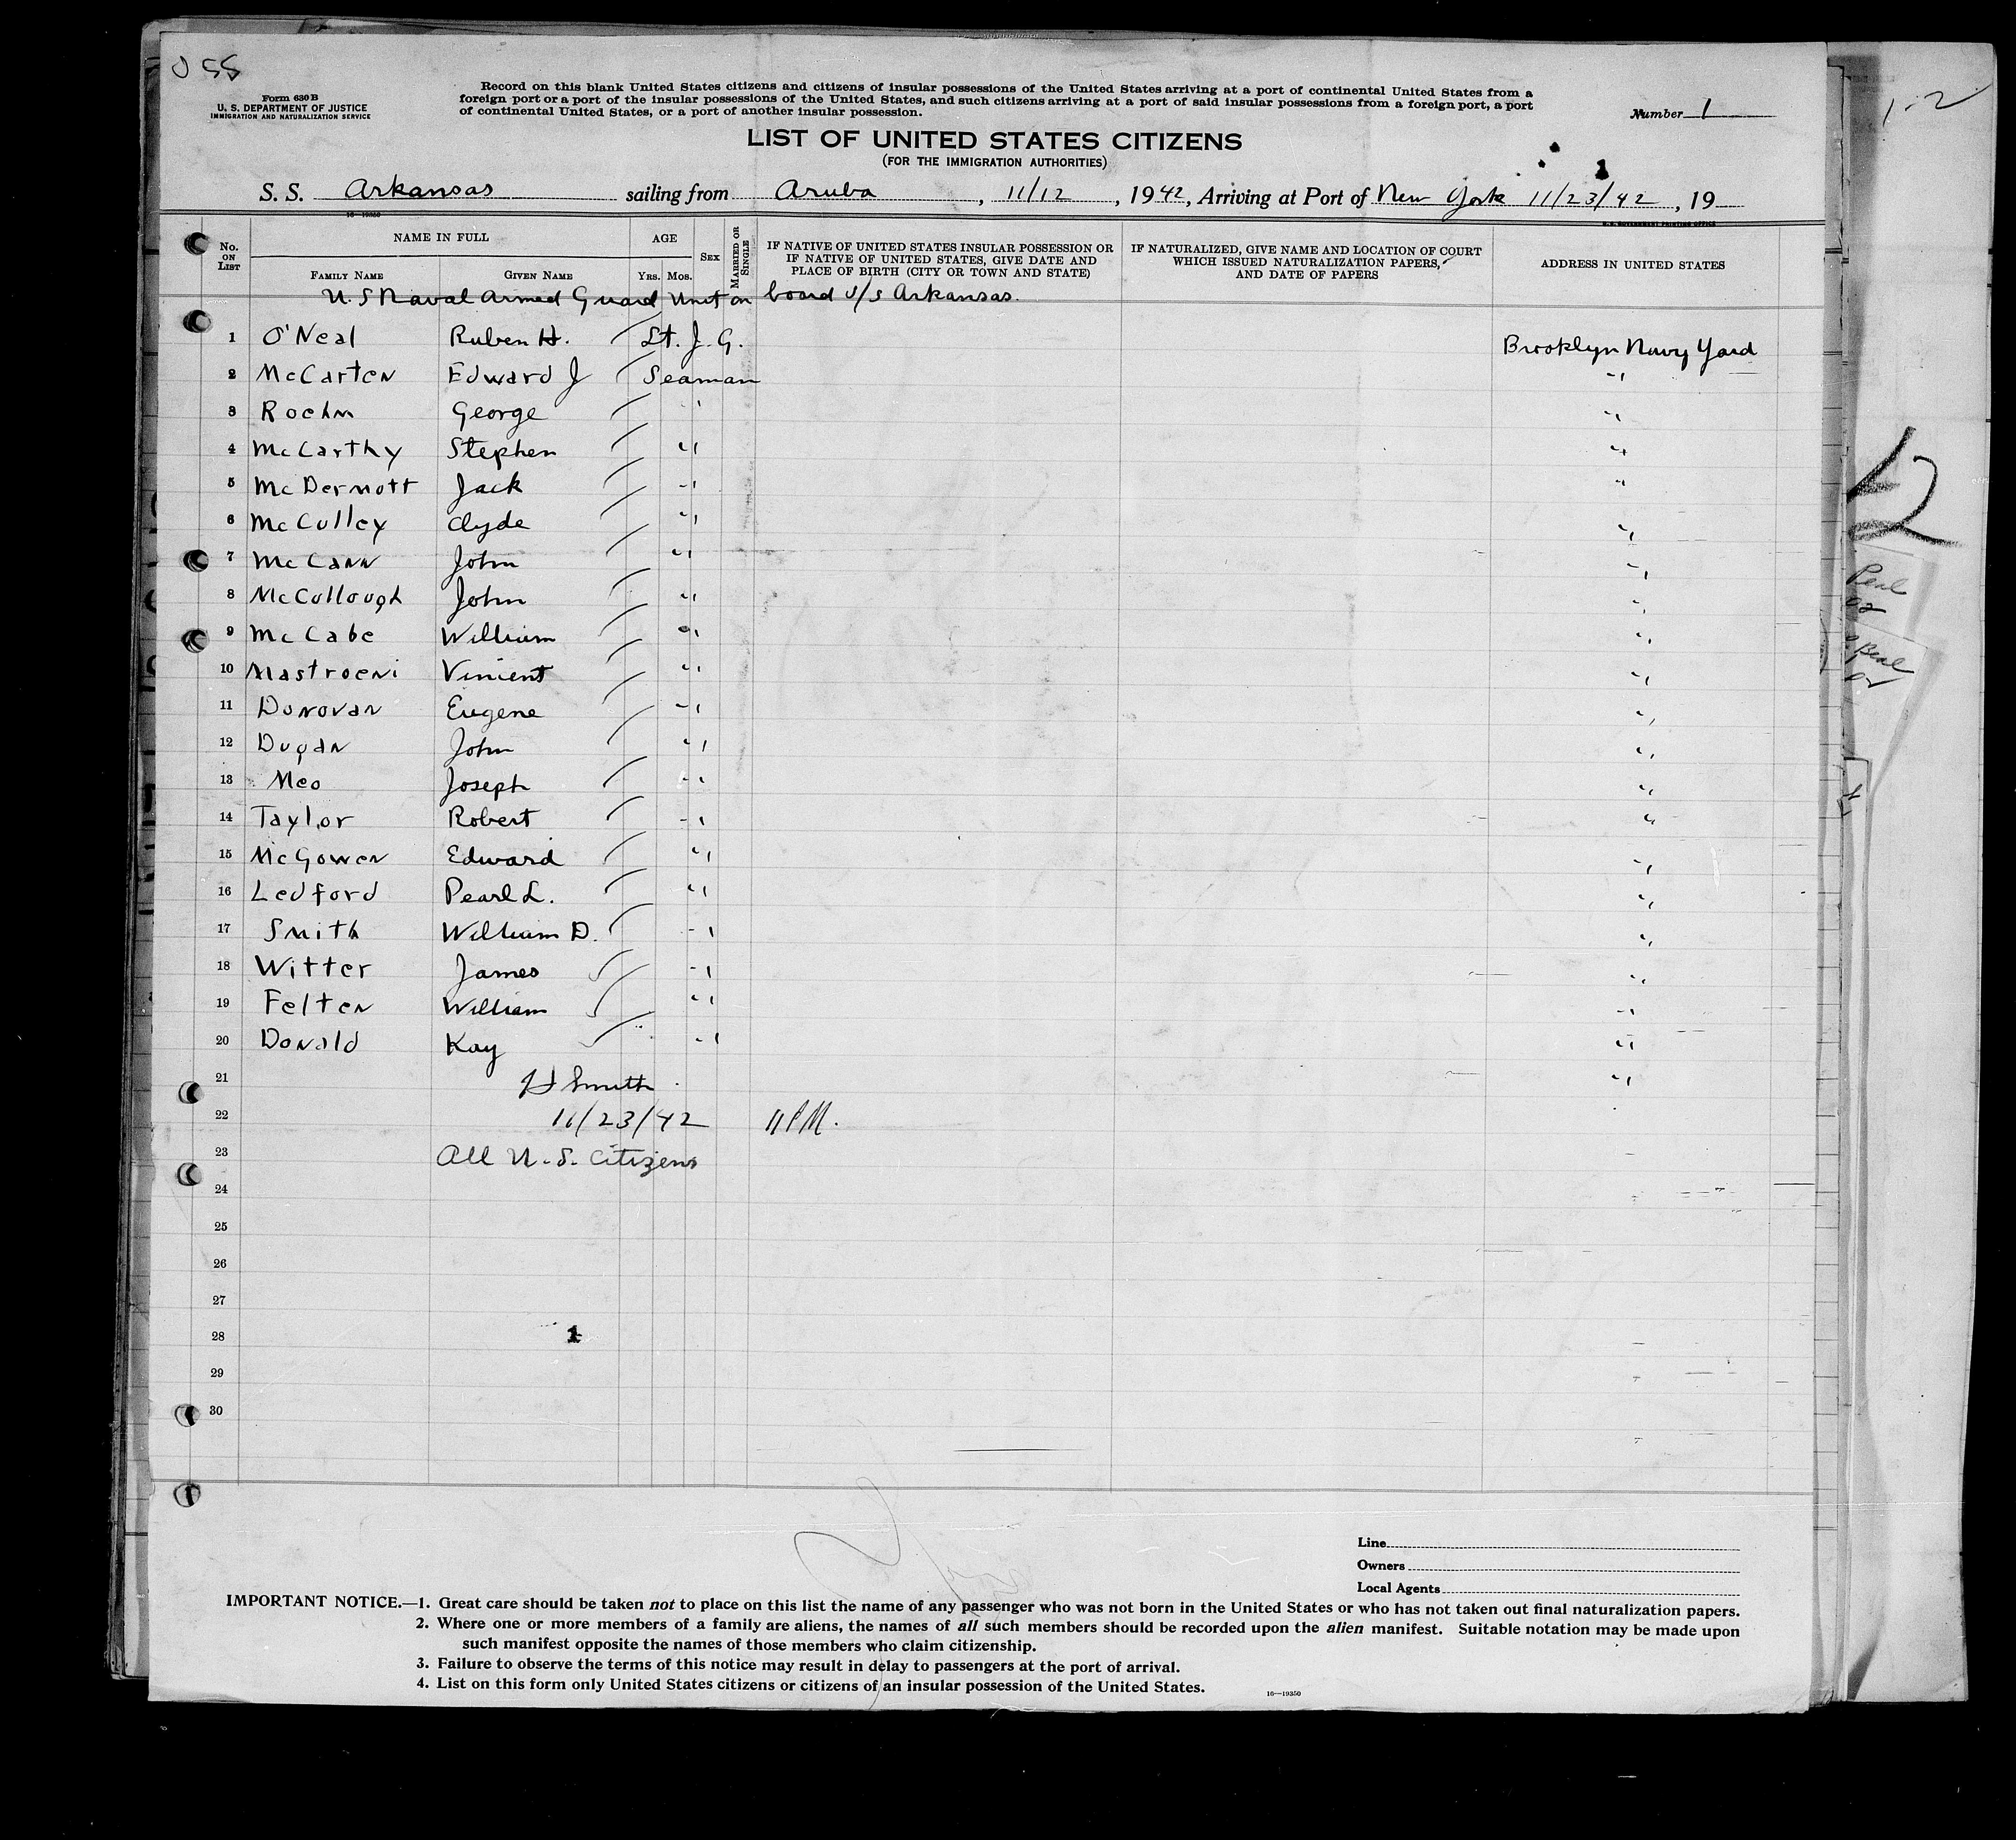 Form 630 B
U. S. DEPARTMENT OF JUSTICE
IMMIGRATION AND NATURALIZATION SERVICE
Record on this blank United States citizens and citizens of insular possessions of the United States arriving at a port of continental United States from a
foreign port or a port of the insular possessions of the United States, and such citizens arriving at a port of said insular possessions from a foreign port, a port
of continental United States, or a port of another insular possession.
Number 1
1-2
LIST OF UNITED STATES CITIZENS
(FOR THE IMMIGRATION AUTHORITIES)
1
S. S. Arkansas sailing from Aruba, 11/12, 1942, Arriving at Port of New York 11/23/42, 19
16—19350
No. ON LIST
NAME IN FULL
FAMILY NAME GIVEN NAME
AGE
YRS. MOS.
SEX
MARRIED OR SINGLE
IF NATIVE OF UNITED STATES INSULAR POSSESSION OR
IF NATIVE OF UNITED STATES, GIVE DATE AND
PLACE OF BIRTH (CITY OR TOWN AND STATE)
IF NATURALIZED, GIVE NAME AND LOCATION OF COURT
WHICH ISSUED NATURALIZATION PAPERS,
AND DATE OF PAPERS
ADDRESS IN UNITED STATES
U.S Naval Armed Guard Unit on board S/S Arkansas.
1 O'Neal Ruben H. Lt. J. G. Brooklyn Navy Yard
2 McCarten Edward J Seaman "
3 Roehm George " "
4 McCarthy Stephen " "
5 McDermott Jack " "
6 McCulley Clyde " "
7 McCann John " "
8 McCullough John " "
9 McCabe William " "
10 Mastroeni Vincent " "
11 Donovan Eugene " "
12 Dugan John " "
13 Meo Joseph " "
14 Taylor Robert " "
15 McGowen Edward " "
16 Ledford Pearl L. " "
17 Smith William D. " "
18 Witter James " "
19 Felten William " "
20 Donald Kay " "
21 H Smith "
22 11/23/42
23 All U.S. Citizens
24
25
26
27
28 1
29
30
Line
Owners
Local Agents
IMPORTANT NOTICE.—1. Great care should be taken not to place on this list the name of any passenger who was not born in the United States or who has not taken out final naturalization papers.
2. Where one or more members of a family are aliens, the names of all such members should be recorded upon the alien manifest. Suitable notation may be made upon
such manifest opposite the names of those members who claim citizenship.
3. Failure to observe the terms of this notice may result in delay to passengers at the port of arrival.
4. List on this form only United States citizens or citizens of an insular possession of the United States.
16—19350